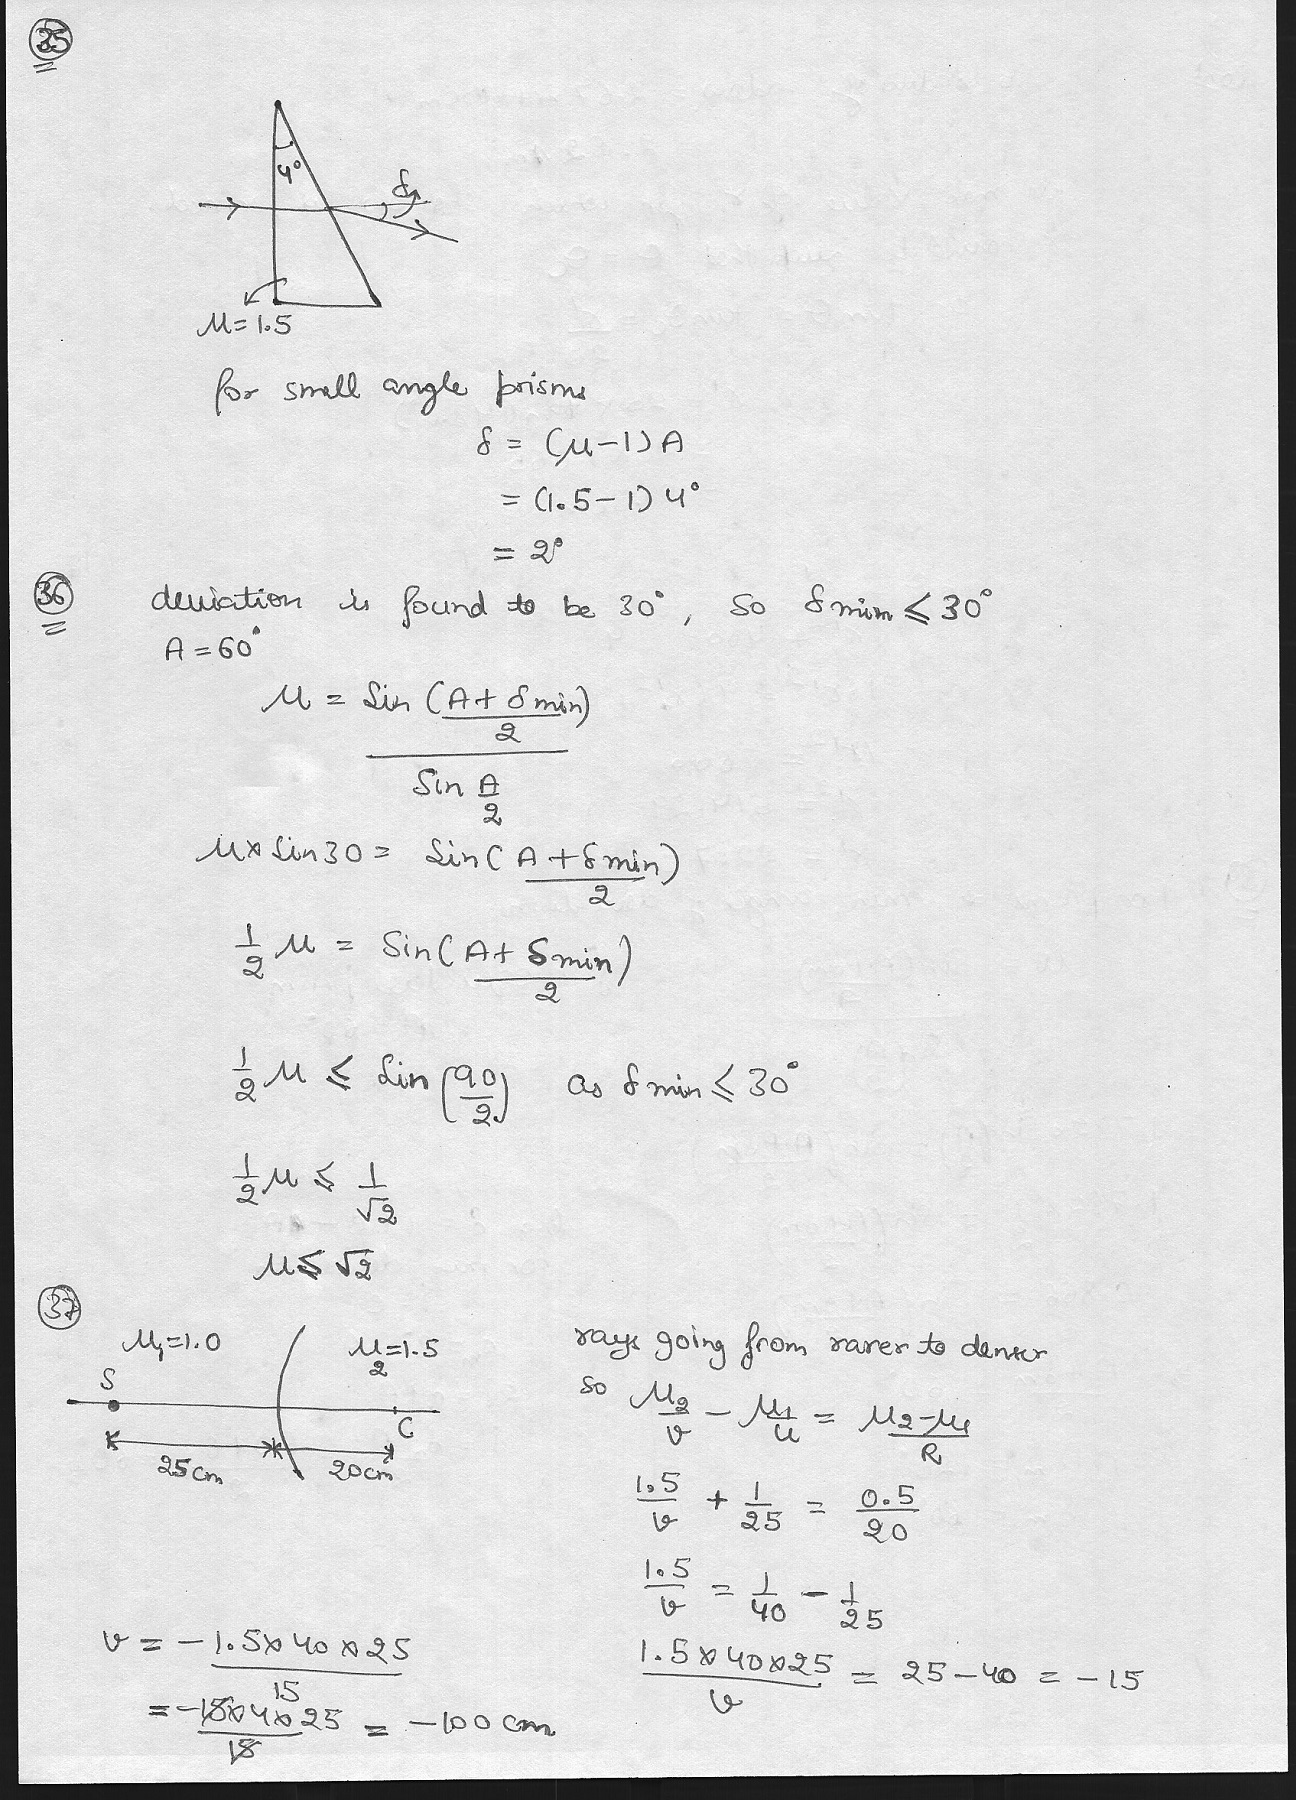 35
4°
δ
μ = 1.5
for small angle prisms
δ = (μ-1) A
= (1.5-1) 4°
= 2°
36 deviation is found to be 30°, so δmin ≤ 30°
A = 60°
μ = sin (A + δmin / 2) / sin A/2
μ × sin 30 = sin (A + δmin / 2)
1/2 μ = sin (A + δmin / 2)
1/2 μ ≤ sin (90/2) as δmin ≤ 30°
1/2 μ ≤ 1/√2
μ ≤ √2
37
μ₁=1.0 μ₂=1.5
S
C
25cm 20cm
rays going from rarer to denser
so μ₂/v - μ₁/u = μ₂-μ₁/R
1.5/v + 1/25 = 0.5/20
1.5/v = 1/40 - 1/25
1.5×40×25/v = 25-40 = -15
v = -1.5×40×25/15
= -15×4×25/15 = -100 cm